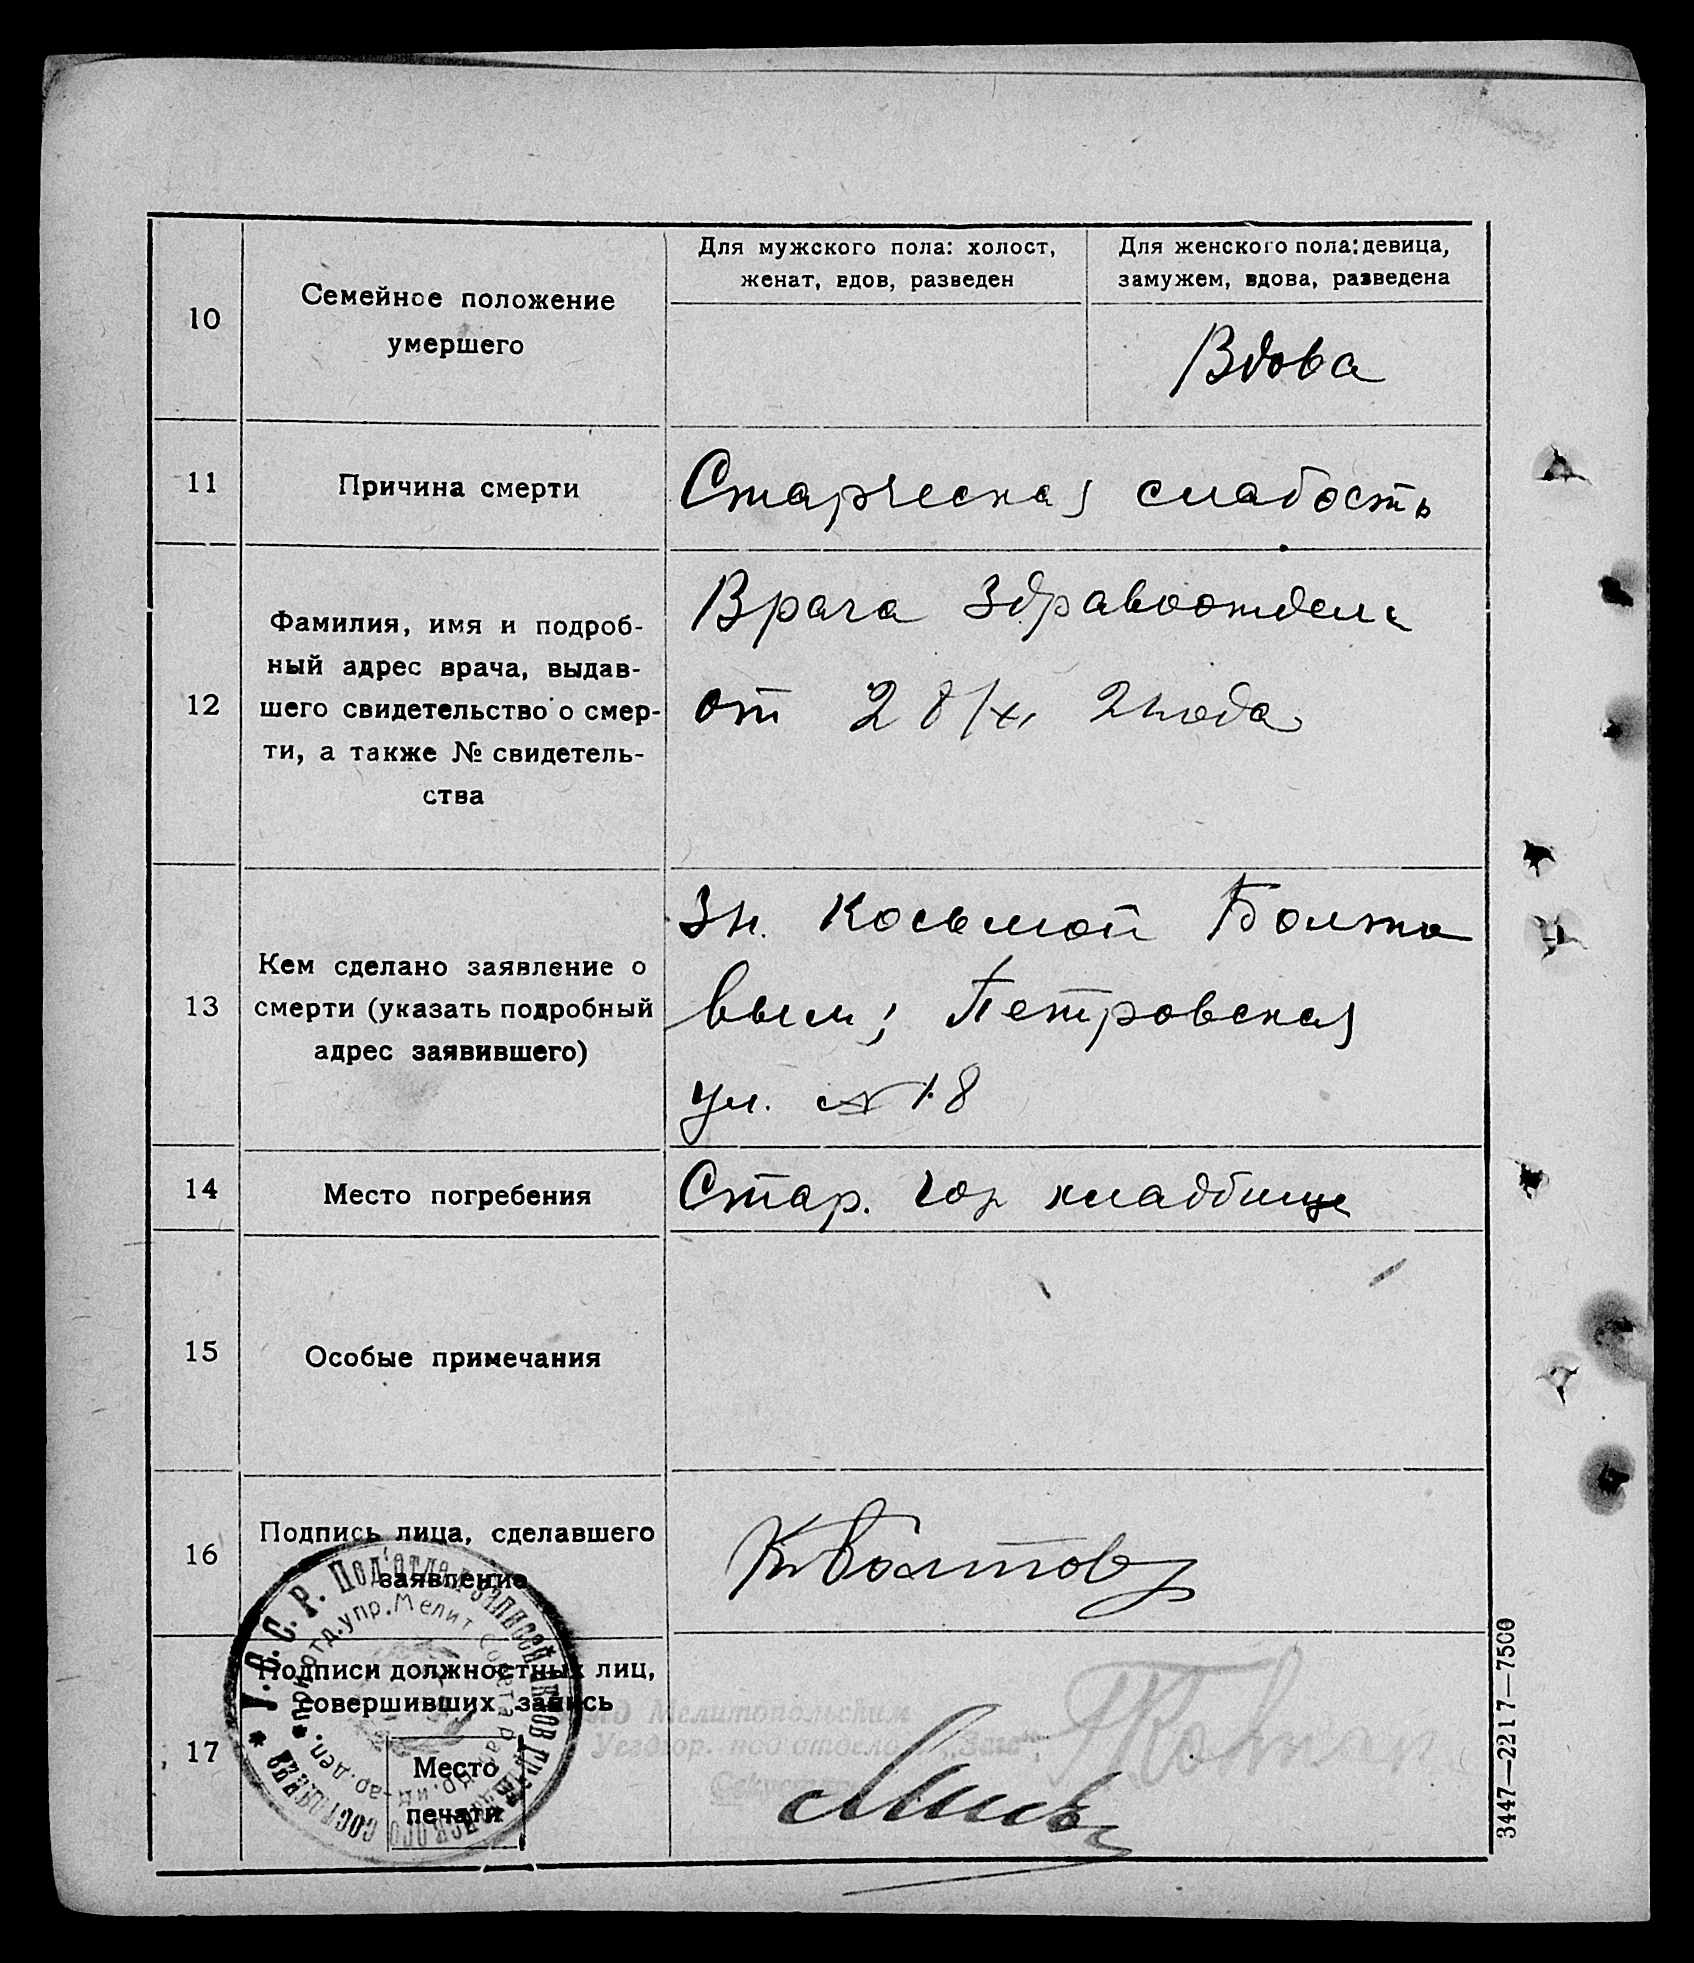 10
Семейное положение
умершего
Для мужского пола: холост,
женат, вдов, разведен
Для женского пола: девица,
замужем, вдова, разведена
Вдова
11
Причина смерти
Старческая слабость
12
Фамилия, имя и подроб-
ный адрес врача, выдав-
шего свидетельство о смер-
ти, а также № свидетель-
ства
Врача Здравоотдела
от 28/XI 2 года
13
Кем сделано заявление о
смерти (указать подробный
адрес заявившего)
Зн. Косьмой Болто
вым; Петровская
ул. № 18
14
Место погребения
Стар. гор кладбище
15
Особые примечания
16
Подпись лица, сделавшего
заявление
К Болтов
17
Подписи должностных лиц,
совершивших запись
Место
печати
У.С.С.Р. Под'отдел записей актов граждан
состояния
при отд. упр. Мелит Совета
Мелитопольским
Уездгор. под отделом „Загс“
3447—2217—7500